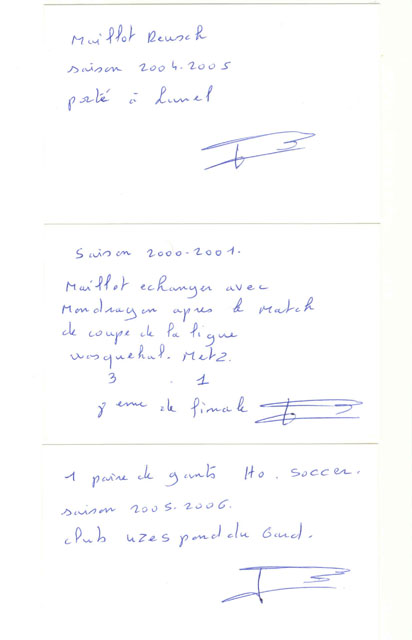 Maillot Reusch
saison 2004.2005
porté à Lunel
Saison 2000-2001.
Maillot echanger avec
Mondragon apres le Match
de coupe de la ligue
wasquehal. Metz.
3 . 1
8 eme de finale
1 paire de gants Ho. Soccer.
saison 2005-2006.
club UZES pond du Gard.